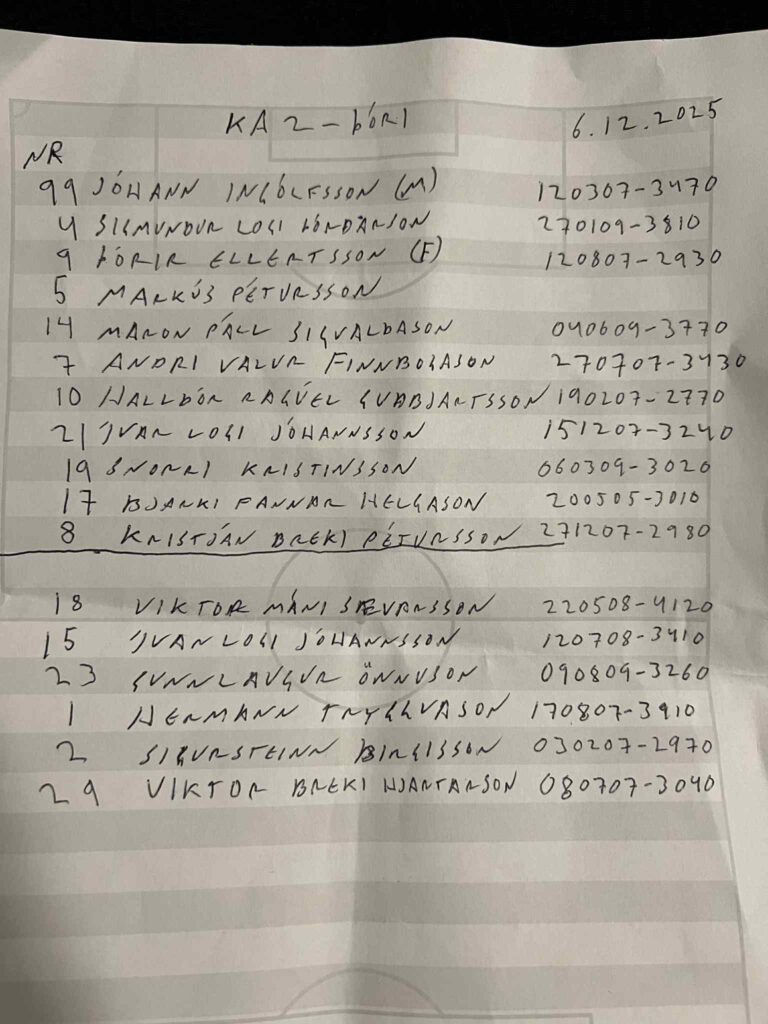 KA 2 - ÞÓRI 6.12.2025
NR
99 JÓHANN INGÓLFSSON (M) 120307-3470
4 SIGMUNDUR LOGI ÞÓRÐARSON 270109-3810
9 ÞÓRIR ELLERTSSON (F) 120807-2930
5 MARKÚS PÉTURSSON
14 MARON PÁLL SIGVALDASON 040609-3770
7 ANDRI VALUR FINNBOGASON 270707-3430
10 HALLDÓR RAGÚEL GUÐBJARTSSON 190207-2770
21 ÍVAR LOGI JÓHANNSSON 151207-3240
19 SNORRI KRISTINSSON 060309-3020
17 BJARKI FANNAR HELGASON 200505-3010
8 KRISTJÁN BREKI PÉTURSSON 271207-2980
18 VIKTOR MÁNI SÆVARSSON 220508-4120
15 ÍVAR LOGI JÓHANNSSON 120708-3410
23 GUNNLAUGUR ÖNNUSON 090809-3260
1 HERMANN TRYGGVASON 170807-3910
2 SIGURSTEINN BIRGISSON 030207-2970
29 VIKTOR BREKI HJARTARSON 080707-3040